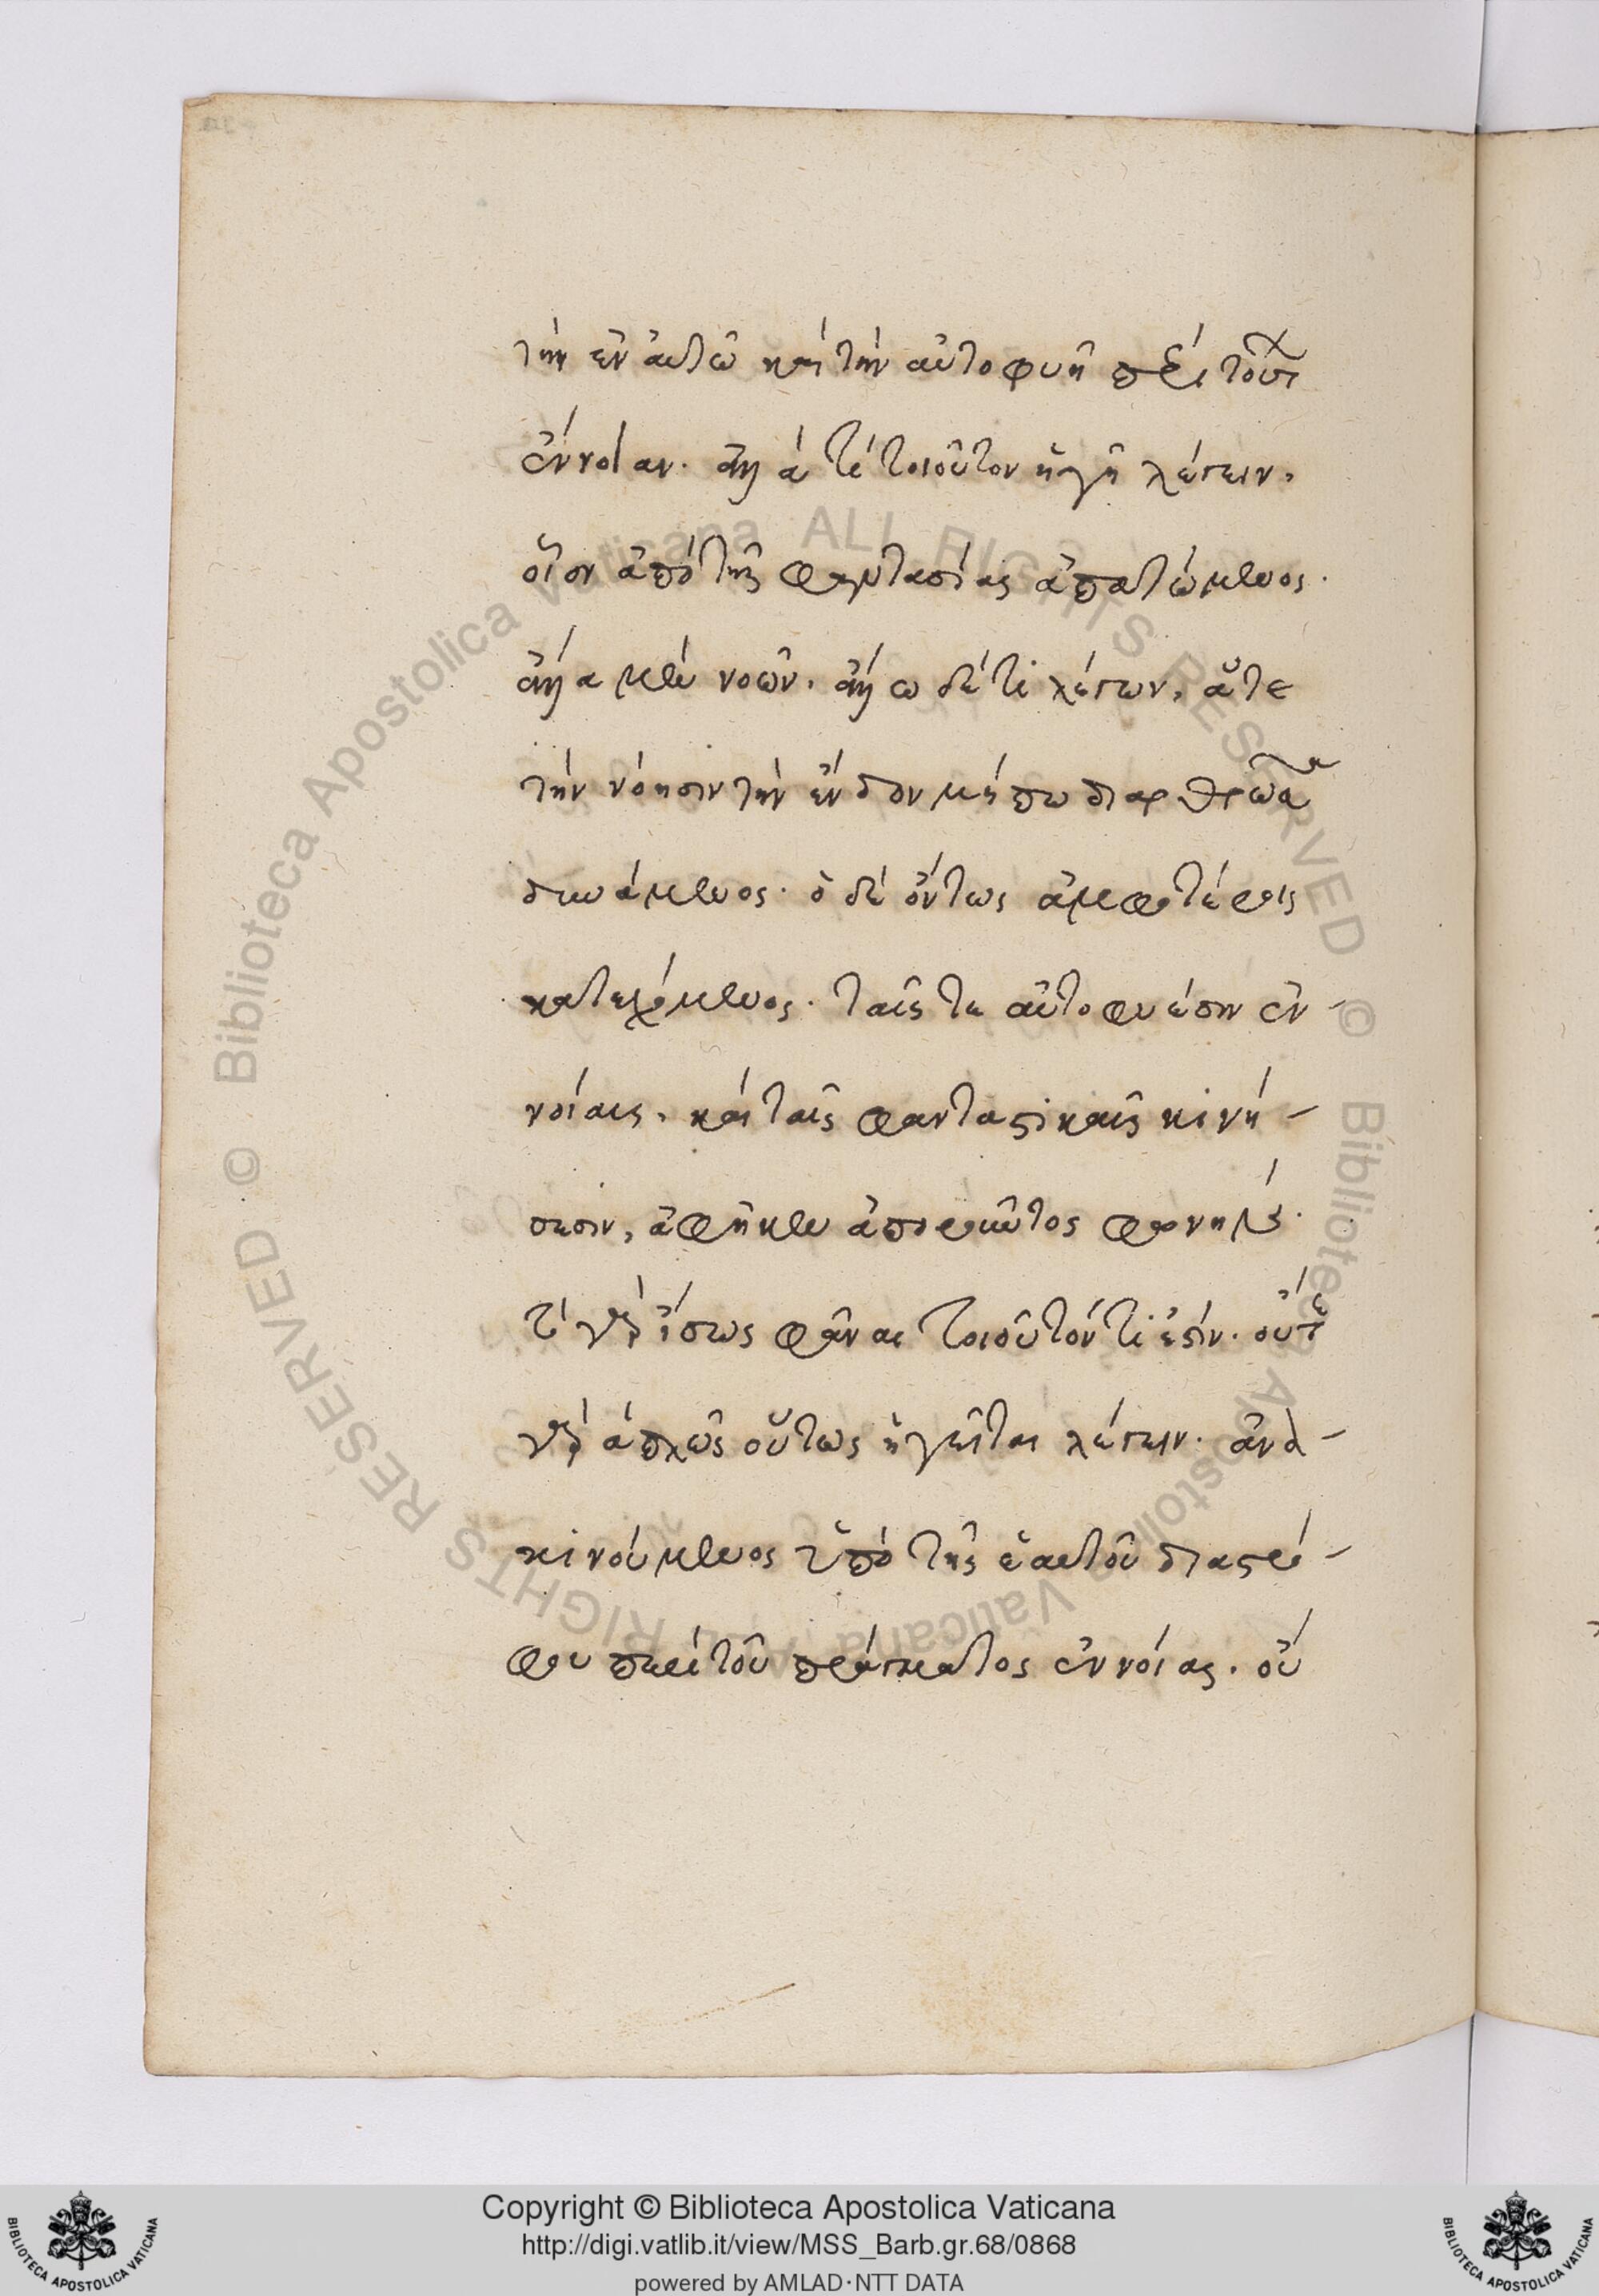 τὴν ἐν αὑτῶ καὶ τὴν αὐτοφυῆ περὶ τούτου
ἔννοιαν. ἀλλά τε τοιοῦτον ἡγῆ λέγειν,
οἷον ἀπὸ τῆς φαντασίας ἀπατώμενος.
ἄλλα μὲν νοῶν, ἄλλο δέ τι λέγων, ἅτε
τὴν νόησιν τὴν ἔνδον μήπω διαρθρῶσαι
δυνάμενος. ὁ δὲ ὄντως ἀμφοτέραις
κατεχόμενος. ταῖς τε αὐτοφυέσιν ἐν-
νοίαις, καὶ ταῖς φανταστικαῖς κινή-
σεσιν, ἀφῆκεν
τί γὰρ ἴσως φάναι τοιοῦτόν τι ἐστίν. οὔτε
γὰρ ἁπλῶς οὕτως ἡγεῖται λέγειν.
κινούμενος ὑπὸ τῆς ἑαυτοῦ διαστρό-
φου περὶ τοῦ πράγματος ἐννοίας. οὐ
Copyright © Biblioteca Apostolica Vaticana
http://digi.vatlib.it/view/MSS_Barb.gr.68/0868
powered by AMLAD·NTT DATA
BIBLIOTECA APOSTOLICA VATICANA
BIBLIOTECA APOSTOLICA VATICANA
© Biblioteca Apostolica Vaticana ALL RIGHTS RESERVED
© Biblioteca Apostolica Vaticana ALL RIGHTS RESERVED